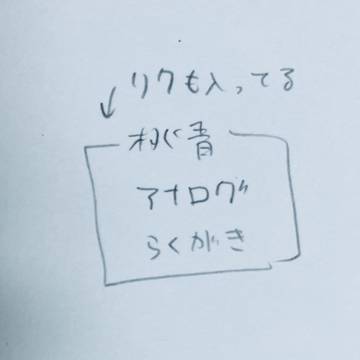 リクも入ってる
青
アナログ
らくがき